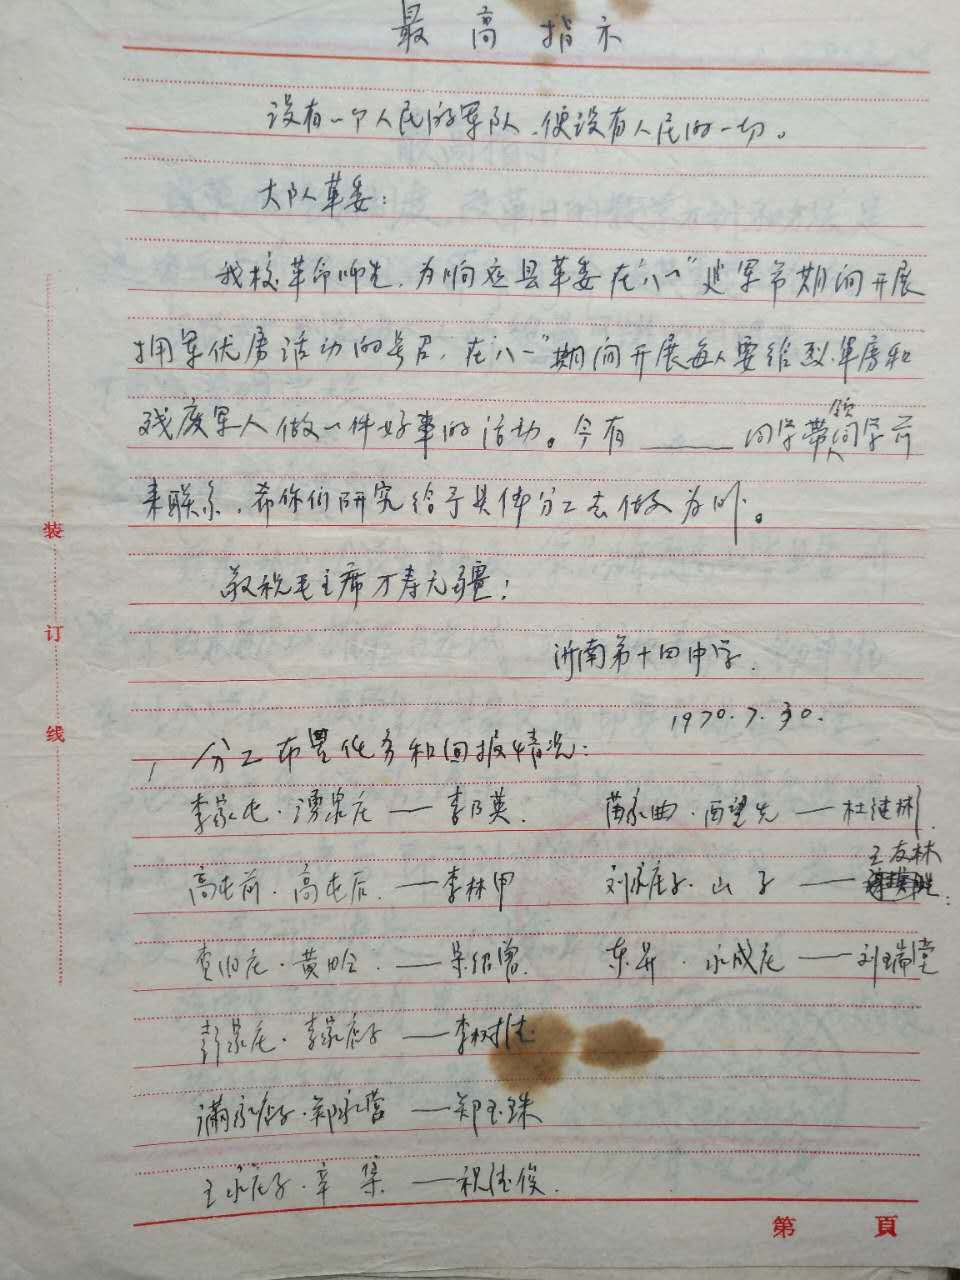 最高指示
没有一个人民的军队，便没有人民的一切。
大队革委：
我校革命师生，为响应县革委在"八一"建军节期间开展
拥军优属活动的号召，在"八一"期间开展每人要给烈军属和
残废军人做一件好事的活动。今有______同学带领同学前
来联系，希你们研究给予具体分工去做为盼。
敬祝毛主席万寿无疆！
沂南第十四中学.
1970.7.30.
分工布置任务和回报情况：
李家屯·湧泉庄——李乃英. 苗家曲·西望先——杜继彬.
高屯前·高屯后.——李林甲 刘家庄子·山子——王友林
黄 ——吴绍曾. 东 ·永成庄——刘瑞堂
彭家庄·李家店子——李树佳
满家店子·郑家营——郑玉珠
王家庄子·辛集——祝佳俊.
装
订
线
第 頁